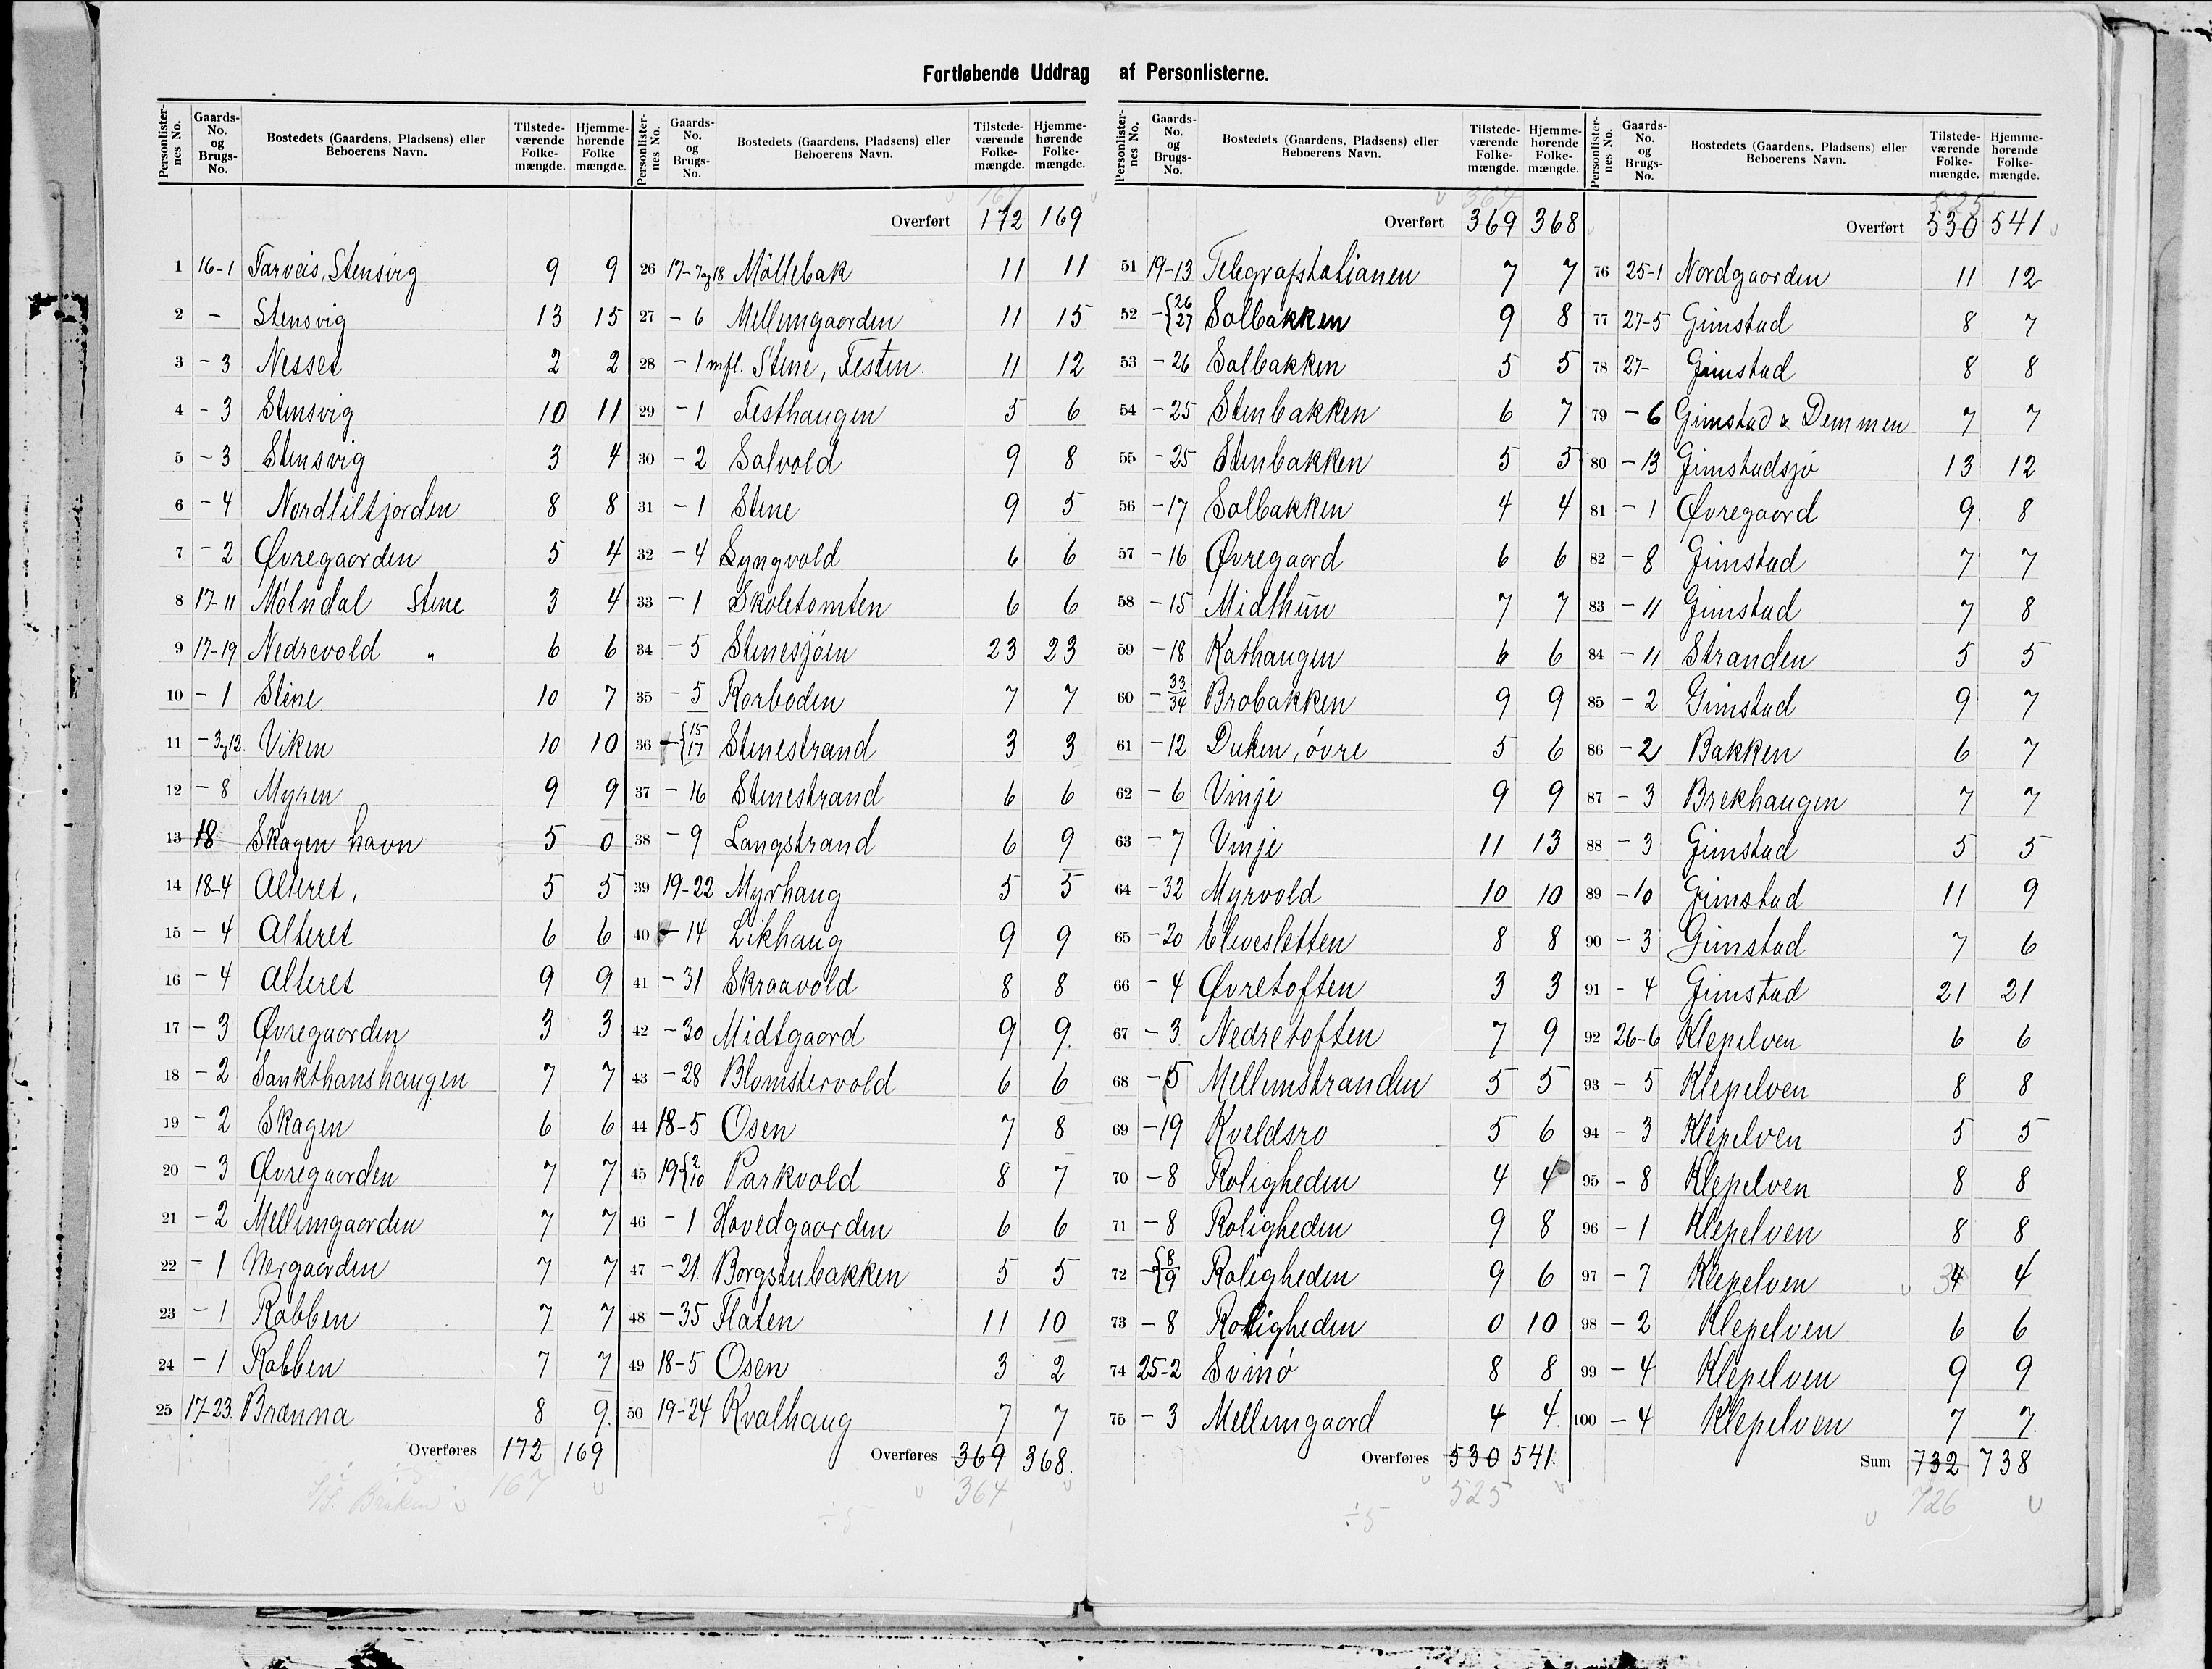 Fortløbende Uddrag af Personlisterne.
Personlister-nes No. Gaards-No. og Brugs-No. Bostedets (Gaardens, Pladsens) eller Beboerens Navn. Tilstede-værende Folke-mængde. Hjemme-hørende Folke mængde.
1 16-1 Farveis, Stensvig 9 9
2 - Stensvig 13 15
3 - 3 Nesset 2 2
4 - 3 Stensvig 10 11
5 - 3 Stensvig 3 4
6 - 4 Nordliltjorden 8 8
7 - 2 Øvregaarden 5 4
8 17-11 Mölndal Stene 3 4
9 17-19 Nedrevold " 6 6
10 - 1 Stene 10 7
11 - 3 og 12. Viken 10 10
12 - 8 Myren 9 9
13 18 Skagen havn 5 0
14 18-4 Alteret, 5 5
15 - 4 Alteret 6 6
16 - 4 Alteret 9 9
17 - 3 Øvregaarden 3 3
18 - 2 Sankthanshaugen 7 7
19 - 2 Skagen 6 6
20 - 3 Øvregaarden 7 7
21 - 2 Mellemgaarden 7 7
22 - 1 Nergaarden 7 7
23 - 1 Robben 7 7
24 - 1 Robben 7 7
25 17-23. Brænna 8 9.
Overføres 172 169
167
Personlister-nes No. Gaards-No. og Brugs-No. Bostedets (Gaardens, Pladsens) eller Beboerens Navn. Tilstede-værende Folke-mængde. Hjemme-hørende Folke-mængde.
167
Overført 172 169
26 17-7 og 18 Möllebak 11 11
27 - 6 Mellemgaarden 11 15
28 - 1 mfl. Stene, Festen. 11 12
29 - 1 Festhaugen 5 6
30 - 2 Solvold 9 8
31 - 1 Stene 9 5
32 - 4 Lyngvold 6 6
33 - 1 Skoletomten 6 6
34 - 5 Stenesjöen 23 23
35 - 5 Rorboden 7 7
36 - {15 17 Stenestrand 3 3
37 - 16 Stenestrand 6 6
38 - 9 Langstrand 6 9
39 19-22 Myrhaug 5 5
40 - 14 Likhaug 9 9
41 - 31 Skraavold 8 8
42 - 30 Midtgaard 9 9.
43 - 28 Blomstervold 6 6
44 18-5 Osen 7 8
45 19{2 10 Parkvold 8 7
46 - 1 Hovedgaarden 6 6
47 - 21. Borgstubakken 5 5
48 - 35 Flaten 11 10
49 18-5 Osen 3 2
50 19-24 Kvalhaug 7 7
Overføres 369 368.
364
÷5
Personlister-nes No. Gaards-No. og Brugs-No. Bostedets (Gaardens, Pladsens) eller Beboerens Navn. Tilstede-værende Folke-mængde. Hjemme-hørende Folke-mængde.
364
Overført 369 368
51 19-13 Telegrafstationen 7 7
52 - {26 27 Solbakken 9 8
53 - 26 Solbakken 5 5
54 - 25 Stenbakken 6 7
55 - 25 Stenbakken 5 5
56 - 17 Solbakken 4 4
57 - 16 Øvregaard 6 6
58 - 15 Midthun 7 7
59 - 18 Kathaugen 6 6
60 - 33 34 Brobakken 9 9
61 - 12 Duken, övre 5 6
62 - 6 Vinje 9 9
63 - 7 Vinje 11 13
64 - 32 Myrvold 10 10
65 - 20 Elvesletten 8 8
66 - 4 Øvretoften 3 3
67 - 3. Nedretoften 7 9
68 - 5 Mellemstranden 5 5
69 - 19 Kveldsro 5 6
70 - 8 Roligheden 4 4
71 - 8 Roligheden 9 8
72 - {8 9 Roligheden 9 6
73 - 8 Roligheden 0 10
74 25-2 Svinö 8 8
75 - 3 Mellemgaard 4 4.
Overføres 530 541.
525
÷5
Personlister-nes No. Gaards-No. og Brugs-No. Bostedets (Gaardens, Pladsens) eller Beboerens Navn. Tilstede-værende Folke-mængde. Hjemme-hørende Folke-mængde.
525
Overført 530 541
76 25-1 Nordgaarden 11 12
77 27-5 Gimstad 8 7
78 27- Gimstad 8 8
79 - 6 Gimstad & Demmen 7 7
80 - 13 Gimstadsjö 13 12
81 - 1 Øvregaard 9 8
82 - 8 Gimstad 7 7
83 - 11 Gimstad 7 8
84 - 11 Stranden 5 5
85 - 2 Gimstad 9 7
86 - 2 Bakken 6 7
87 - 3 Brekhaugen 7 7
88 - 3 Gimstad 5 5
89 - 10 Gimstad 11 9
90 - 3 Gimstad 7 6
91 - 4 Gimstad 21 21
92 26-6 Klepelven 6 6
93 - 5 Klepelven 8 8
94 - 3 Klepelven 5 5
95 - 8 Klepelven 8 8
96 - 1 Klepelven 8 8
97 - 7 Klepelven 4 4
98 - 2 Klepelven 6 6
99 - 4 Klepelven 9 9
100 - 4 Klepelven 7 7
Sum 732 738
726